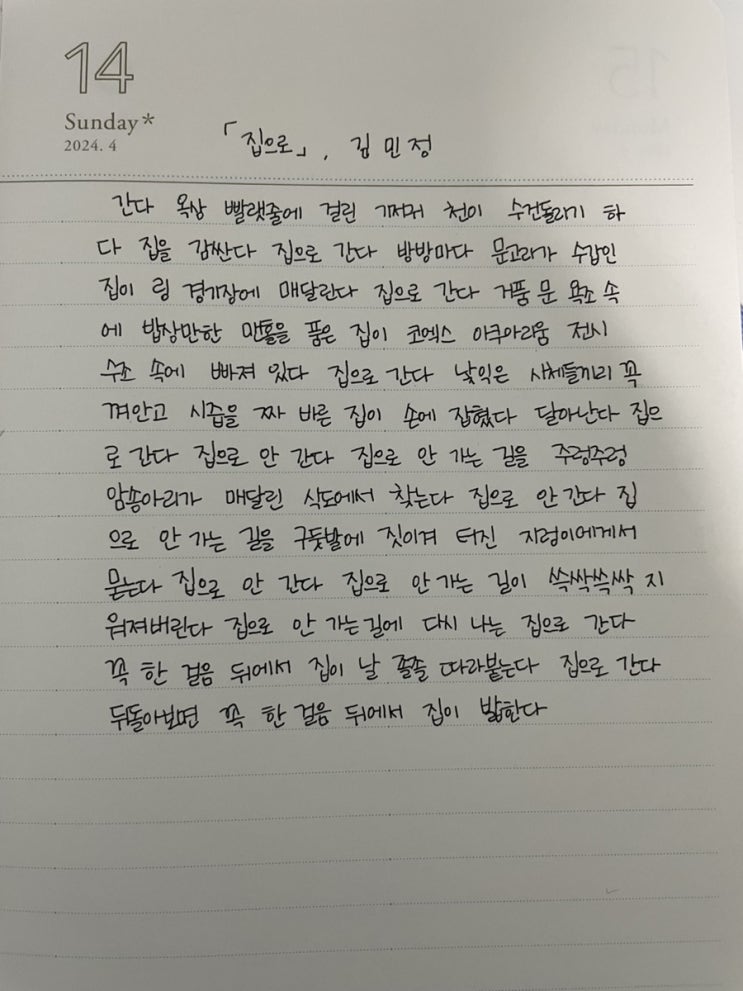 14
Sunday*
2024. 4
「집으로」, 김민정
간다 옥상 빨랫줄에 걸린 기저귀 천이 수건돌리기 하
다 집을 감싼다 집으로 간다 방방마다 문고리가 수갑인
집이 링 경기장에 매달린다 집으로 간다 거품 문 욕조 속
에 밥상만한 만홀을 품은 집이 코엑스 아쿠아리움 전시
수조 속에 빠져 있다 집으로 간다 낯익은 사체들끼리 꼭
껴안고 시즙을 짜 바른 집이 손에 잡혔다 달아난다 집으
로 간다 집으로 안 간다 집으로 안 가는 길을 주렁주렁
암송아리가 매달린 식도에서 찾는다 집으로 안 간다 집
으로 안 가는 길을 구둣발에 짓이겨 터진 지렁이에게서
묻는다 집으로 안 간다 집으로 안 가는 길이 쓱싹쓱싹 지
워져버린다 집으로 안 가는 길에 다시 나는 집으로 간다
꼭 한 걸음 뒤에서 집이 날 졸졸 따라붙는다 집으로 간다
뒤돌아보면 꼭 한 걸음 뒤에서 집이 밟한다